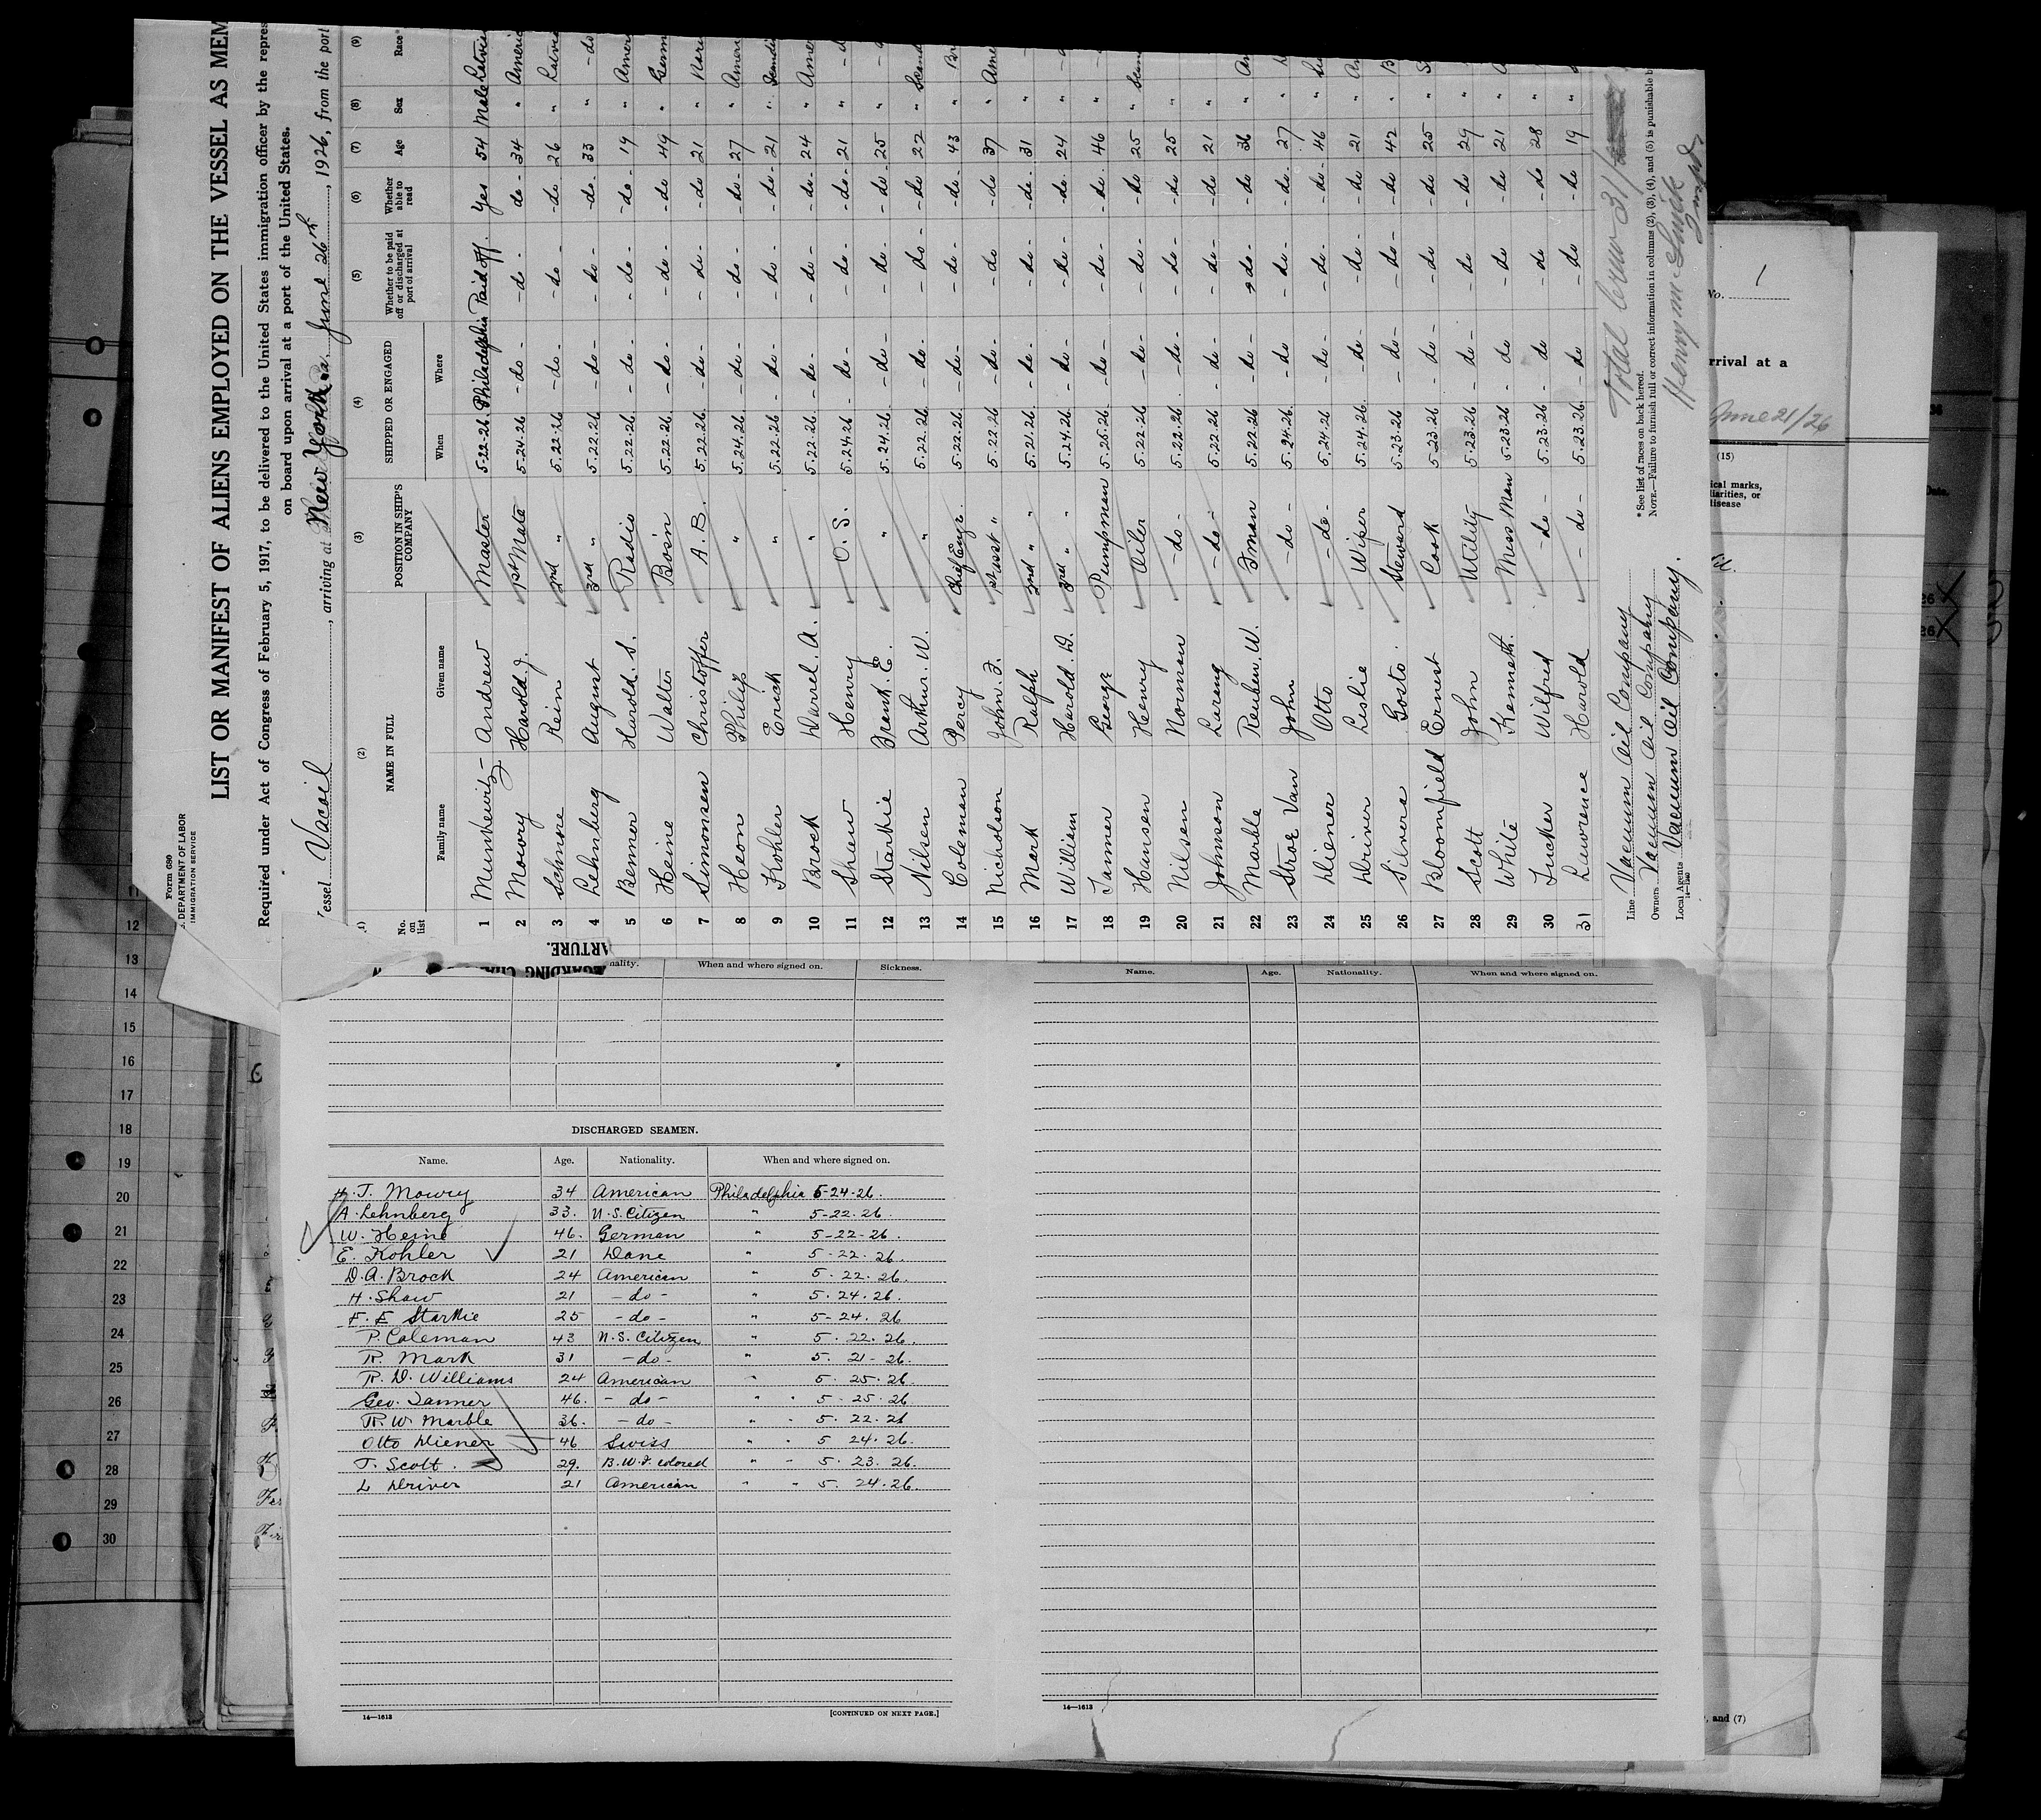 Form 680
DEPARTMENT OF LABOR
IMMIGRATION SERVICE
LIST OR MANIFEST OF ALIENS EMPLOYED ON THE VESSEL AS MEM
Required under Act of Congress of February 5, 1917, to be delivered to the United States immigration officer by the repres
on board upon arrival at a port of the United States.
essel Vacoil, arriving at New York, June 26th, 1926, from the port
(1) (2) (3) (4) (5) (6) (7) (8) (9)
No. on list NAME IN FULL POSITION IN SHIP'S COMPANY SHIPPED OR ENGAGED Whether to be paid off or discharged at port of arrival Whether able to read Age Sex Race*
Family name Given name When Where
1 Andrew Master 5-22-26 Philadelphia Paid off. Yes 54 Male Latvia
2 Mowry Harold J. 1st Mate 5-24-26 -do- -do- do- 34 " Americ
3 Schnore Rein 2nd " 5.22.26 -do- -do- -do 26 " Latvia
4 Lehnberg August 3rd " 5.22.26 -do- -do- -do- 33 " -do
5 Benner Harold. S. Radio 5.22.26 -do- -do- -do- 19 " Amer
6 Heine Walter Bo'sn 5.22.26 -do- -do- -do 49 " Germ
7 Simonsen Christoffer A.B. 5.22.26 -do- -do- -do 21 "
8 Heon Philip " 5.24.26 -do- -do- -do- 27 " Amer
9 Kohler Erick " 5.22.26 -do- -do- -do- 21 " Scandi
10 Brock Darrel. A. " 5.22.26 -do- -do- -do- 24 " Amer
11 Shaw Henry O.S. 5.24.26 -do- -do- -do- 21 " -d
12 Starkie Frank. E. " 5.24.26 -do- -do- -do 25 "
13 Nilsen Arthur. W. " 5.22.26 -do- -do- -do 22 " Scand
14 Coleman Percy Chief Engr. 5.22.26 -do- -do- -do- 43 " Br
15 Nicholson John. F. 1st asst " 5.22.26 -do- -do -do 37 " Ame
16 Mark Ralph 2nd " " 5.21.26 -do- -do- -do- 31 " -
17 William Harold. D. 3rd " " 5.24.26 -do- -do- -do. 24 "
18 Tanner George Pumpman 5.25.26 -do- -do- -do. 46 "
19 Hansen Henry Oiler 5.22.26 -do- -do- -do 25 " Scan
20 Nilsen Norman -do- 5.22.26 -do- -do- -do 25 "
21 Johnson -do- 5.22.26 -do- -do- -do 21 "
22 Marble Reuben. W. Fman 5.22.26 -do- -do- -do 36 " Am
23 Van John -do- 5.24.26 -do -do- -do. 27 "
24 Diener Otto -do- 5.24.26 -do- -do- -do- 46 " Sw
25 Driver Leslie Wiper 5.24.26 -do- -do- -do 21 " Am
26 Silvera Gosto. Steward 5.23.26 -do -do- -do 42 " B
27 Bloomfield Ernest Cook 5.23.26 -do- -do -do 25 " S
28 Scott John Utility 5.23.26 -do- -do -do 29 "
29 White Kenneth. Mess Man 5.23.26 -do -do -do 21 "
30 Tucker Wilfred -do- 5.23.26 -do -do -do 28 "
31 Lawrence Harold -do- 5.23.26 -do -do -do 19 "
Total Crew 31/
Line Vacuum Oil Company
Owners Vacuum Oil Company
Local Agents Vacuum Oil Company.
* See list of races on back hereof.
NOTE.—Failure to furnish full or correct information in columns (2), (3), (4), and (5) is punishable b
No. 1
rrival at a
June 21/26
(15)
ical marks,
liarities, or
disease
, and (7)
ARTURE.
nality. When and where signed on. Sickness.
Name. Age. Nationality. When and where signed on.
DISCHARGED SEAMEN.
Name. Age. Nationality. When and where signed on.
H. J. Mowry 34 American Philadelphia 5-24-26.
A. Lehnberg 33. U.S. Citizen " 5-22-26.
W. Heine 46. German " 5-22-26.
E. Kohler 21 Dane " 5-22-26.
D. A. Brock 24 American " 5. 22. 26.
H. Shaw 21 -do- " 5. 24. 26.
F. E Starkie 25 -do- " 5-24. 26
P. Coleman 43 U.S. Citizen " 5. 22. 26.
R. Mark 31 -do- " 5. 21-26.
R. D. Williams 24 American " 5. 25. 26.
Geo. Tanner 46. -do- " " 5-25.26
R. W. Marble 36. -do- " " 5. 22. 26
Otto Diener 46 Swiss " " 5 24. 26.
J. Scott. 29. B.W.I. colored " " 5. 23. 26.
L Driver 21 American " " 5. 24.26.
14—1613
[CONTINUED ON NEXT PAGE.]
14—1613
12
13
14
15
16
17
18
19
20
21
22
23
24
25
26
27
28
29
30